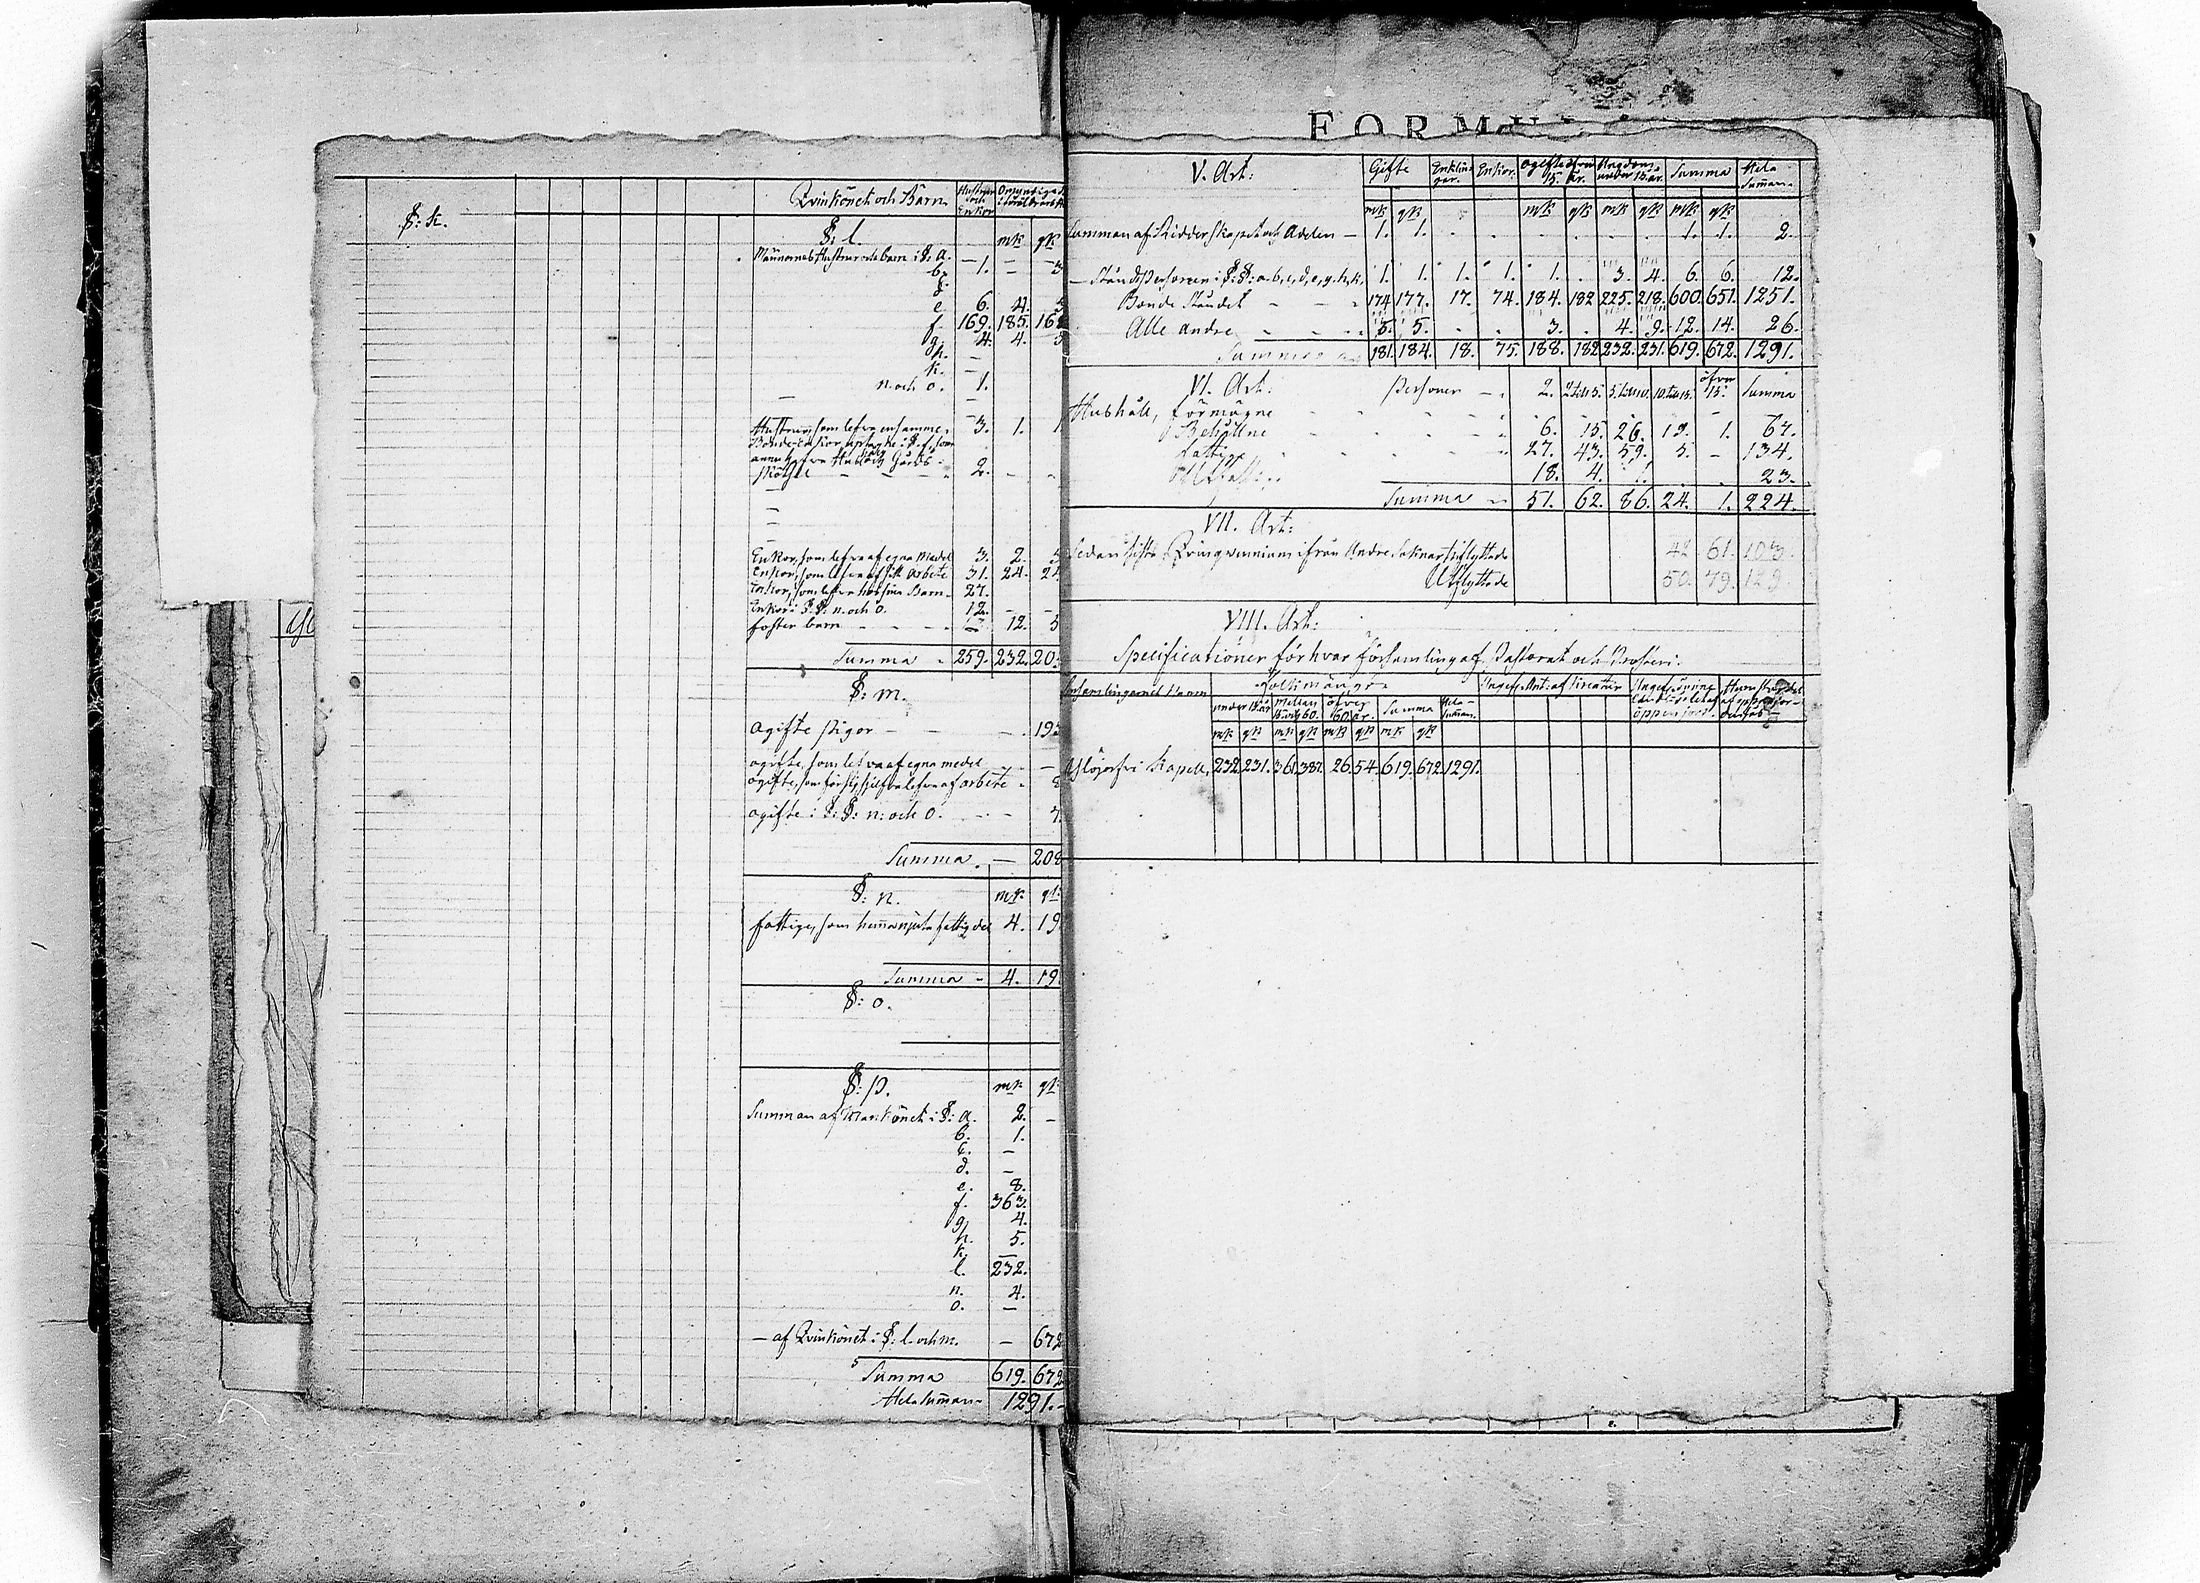 §: k.
Qvinkönet och Barn. Hustrur och Enkor
§: l. mk qk
Männernes Hustrur och barn i §: a. — — —
b. 1. — 3
e. 6. 4. 5
f. 169. 185. 16
g. 4. 4. 3
h. —
k. —
n. och o. 1.
Hustrur, som lefva ensamme. 3. 1. 1
2. - -
Enkor, som lefva af egna Medel 3. 2. 5
Enkor, som lefva af sitt arbete 31. 24. 24
Enkor, som lefva hos sina Barn. 27.
Enkor i §. §. n. och o. 12. — —
foster barn - - - - 12. 5
Summa . 259. 232. 20
§: m.
ogifte Pigor — — — . 193
ogifte, som lefva af egna medel - - —
ogifte, som för sig sjelfva lefva af arbete - 8
ogifte i §: §: n: och o. - - - 7.
Summa . — 208
§: n. mk. qk
fattige, som 4. 19
Summa - 4. 19
§: o.
§: p. mk qk
Summan af Mankönet i §: a. 2. —
b. 1.
c. —
d. —
e. 8.
f. 363.
g. 4.
h. 5.
k. —
l. 232.
n. 4.
o. —
— af Qvinkönet i §: l. och m. — 672
Summa 619. 672
Hela Summan - 1291. -
FORMUL
V. Art: Gifte Enklingar. Enkor. ogifte öfver 15. år. Ungdom under 15. år. Summa Hela Summan.
mk qk mk qk mk qk mk qk
Summan af Ridderskapet och Adelen — 1. 1. . . . . . . 1. 1. 2.
— Ståndspersoner i §: §: a. b. c. d. e. g. h. k. 1. 1. 1. 1. 1. . 3. 4. 6. 6. 12.
Bonde Ståndet - - - 174 177. 17. 74. 184. 182 225. 218. 600. 651. 1251.
Alle andre - - - - 5. 5. . . 3. . 4. 9. 12. 14. 26.
Summa 181. 184. 18. 75. 188. 182 232. 231. 619. 672. 1291.
VI. Art. Personer - . 2. 2 till 5. 5. till 10. 10. till 15. öfver 15. Summa
Hushåll, förmögne - - - - - - - -
Behållne - - - - 6. 15. 26. 19. 1. 67.
fattige - - - - 27. 43. 59. 5. — 134.
18. 4. 1. . . 23.
Summa - 51. 62. 86. 24. 1. 224.
VII. Art:
Sedan sista Qvinqvennium ifrån Andre Soknar Inflyttade 42 61. 103.
Utflyttade 50. 79. 129.
VIII. Art:
Specificationer för hvar församling af Pastorat och Prosteri.
Församlingarnes Namn Folkmängd.
under 15 år Mellan 15 och 60. öfver 60. år. Summa Hela Summan.
mk qk mk qk mk qk mk qk
Kapell, 232. 231. 361. 387. 26. 54. 619. 672 1291.